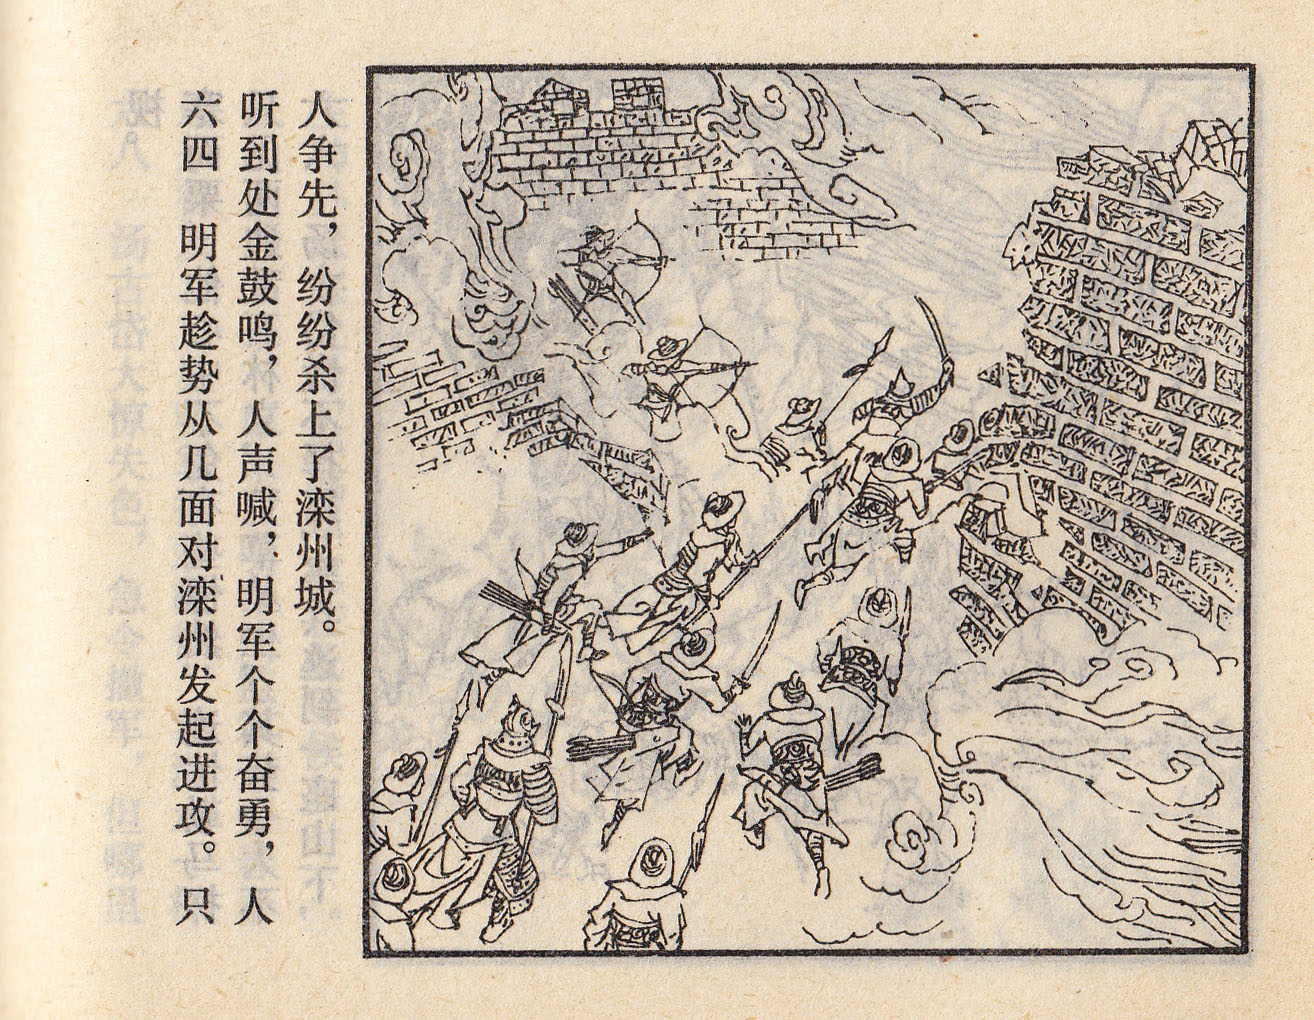 六四　明军趁势从几面对滦州发起进攻。只
听到处金鼓鸣，人声喊，明军个个奋勇，人
人争先，纷纷杀上了滦州城。